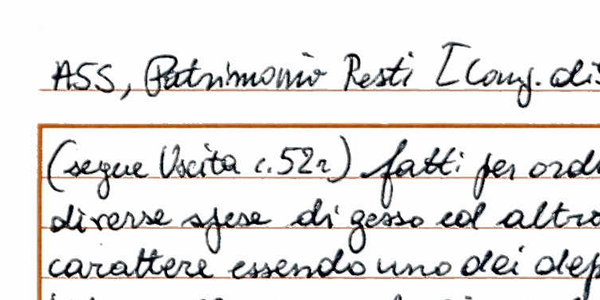 ASS, Patrimonio Resti [Cong. dis
(segue Uscita c.52r) fatti per ord
diverse spese di gesso ed altro
carattere essendo uno dei dep